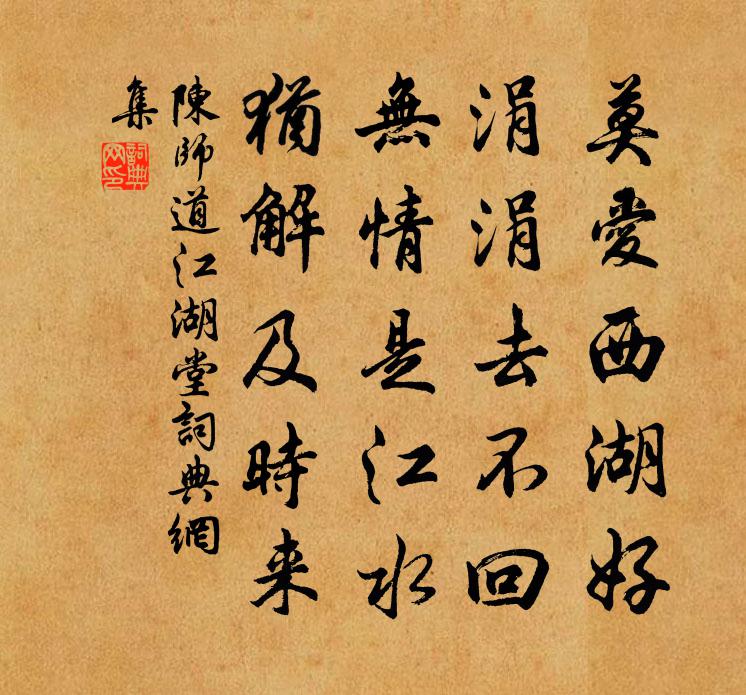 莫愛西湖好
涓涓去不回
無情是江水
猶解及時来
陳師道江湖堂詞典網
集
詞典網印